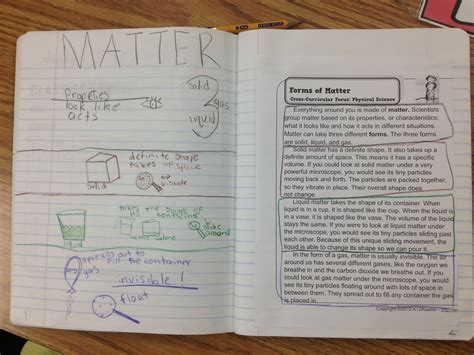 MATTER
Propeties
look like
acts
solid
gas
liquid
definite shape
takes up space
solid
vibrate
takes the shape of
container
same volume
slide
around
liquid
spreads out to
fill the container
gas
invisible!
float
1
Forms of Matter
Cross-Curricular Focus: Physical Science
Everything around you is made of matter. Scientists
group matter based on its properties, or characteristics:
what it looks like and how it acts in different situations.
Matter can take three different forms. The three forms
are solid, liquid, and gas.
Solid matter has a definite shape. It also takes up a
definite amount of space. This means it has a specific
volume. If you could look at solid matter under a very
powerful microscope, you would see its tiny particles
moving back and forth. The particles are packed together,
so they vibrate in place. Their overall shape does
not change.
Liquid matter takes the shape of its container. When
liquid is in a cup, it is shaped like the cup. When the liquid is
in a vase, it is shaped like the vase. The volume of the liquid
stays the same. If you were to look at liquid matter under
the microscope, you would see its tiny particles sliding past
each other. Because of this unique sliding movement, the
liquid is able to change its shape so we can pour it.
In the form of a gas, matter is usually invisible. The air
around us has several different gases, like the oxygen we
breathe in and the carbon dioxide we breathe out. If you
could look at gas matter under the microscope, you would
see its tiny particles float around with lots of space in
between them. They spread out to fill any container the gas
is placed in.